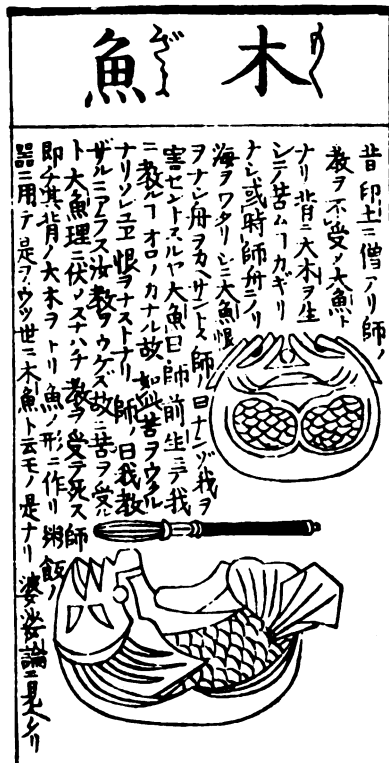 木魚
もくぎよ
昔印土ニ僧アリ師ノ
教ヲ不受〆大魚ト
ナリ背ニ大木ヲ生
シテ苦ムヿカギリ
ナシ或時師舟ニノリ
海ヲワタリシニ大魚恨
ヲナシ舟ヲカヘサントス師ノ曰ナンゾ我ヲ
害セントスルヤ大魚曰師前生ニテ我
ニ教ルヿオロソカナル故如此苦ヲウクル
ナリソレユヱ恨ヲナストナリ師ノ曰我教
ザルニアラス汝教ヲウケズ故ニ苦ヲ受ル
ト大魚理ニ伏〆スナハチ教ヲ受テ死ス師
即チ其背ノ大木ヲトリ魚ノ形ニ作リ粥飯ノ
器ニ用テ是ヲウツ世ニ木魚ト云モノ是ナリ婆娑論ニ見ヘタリ